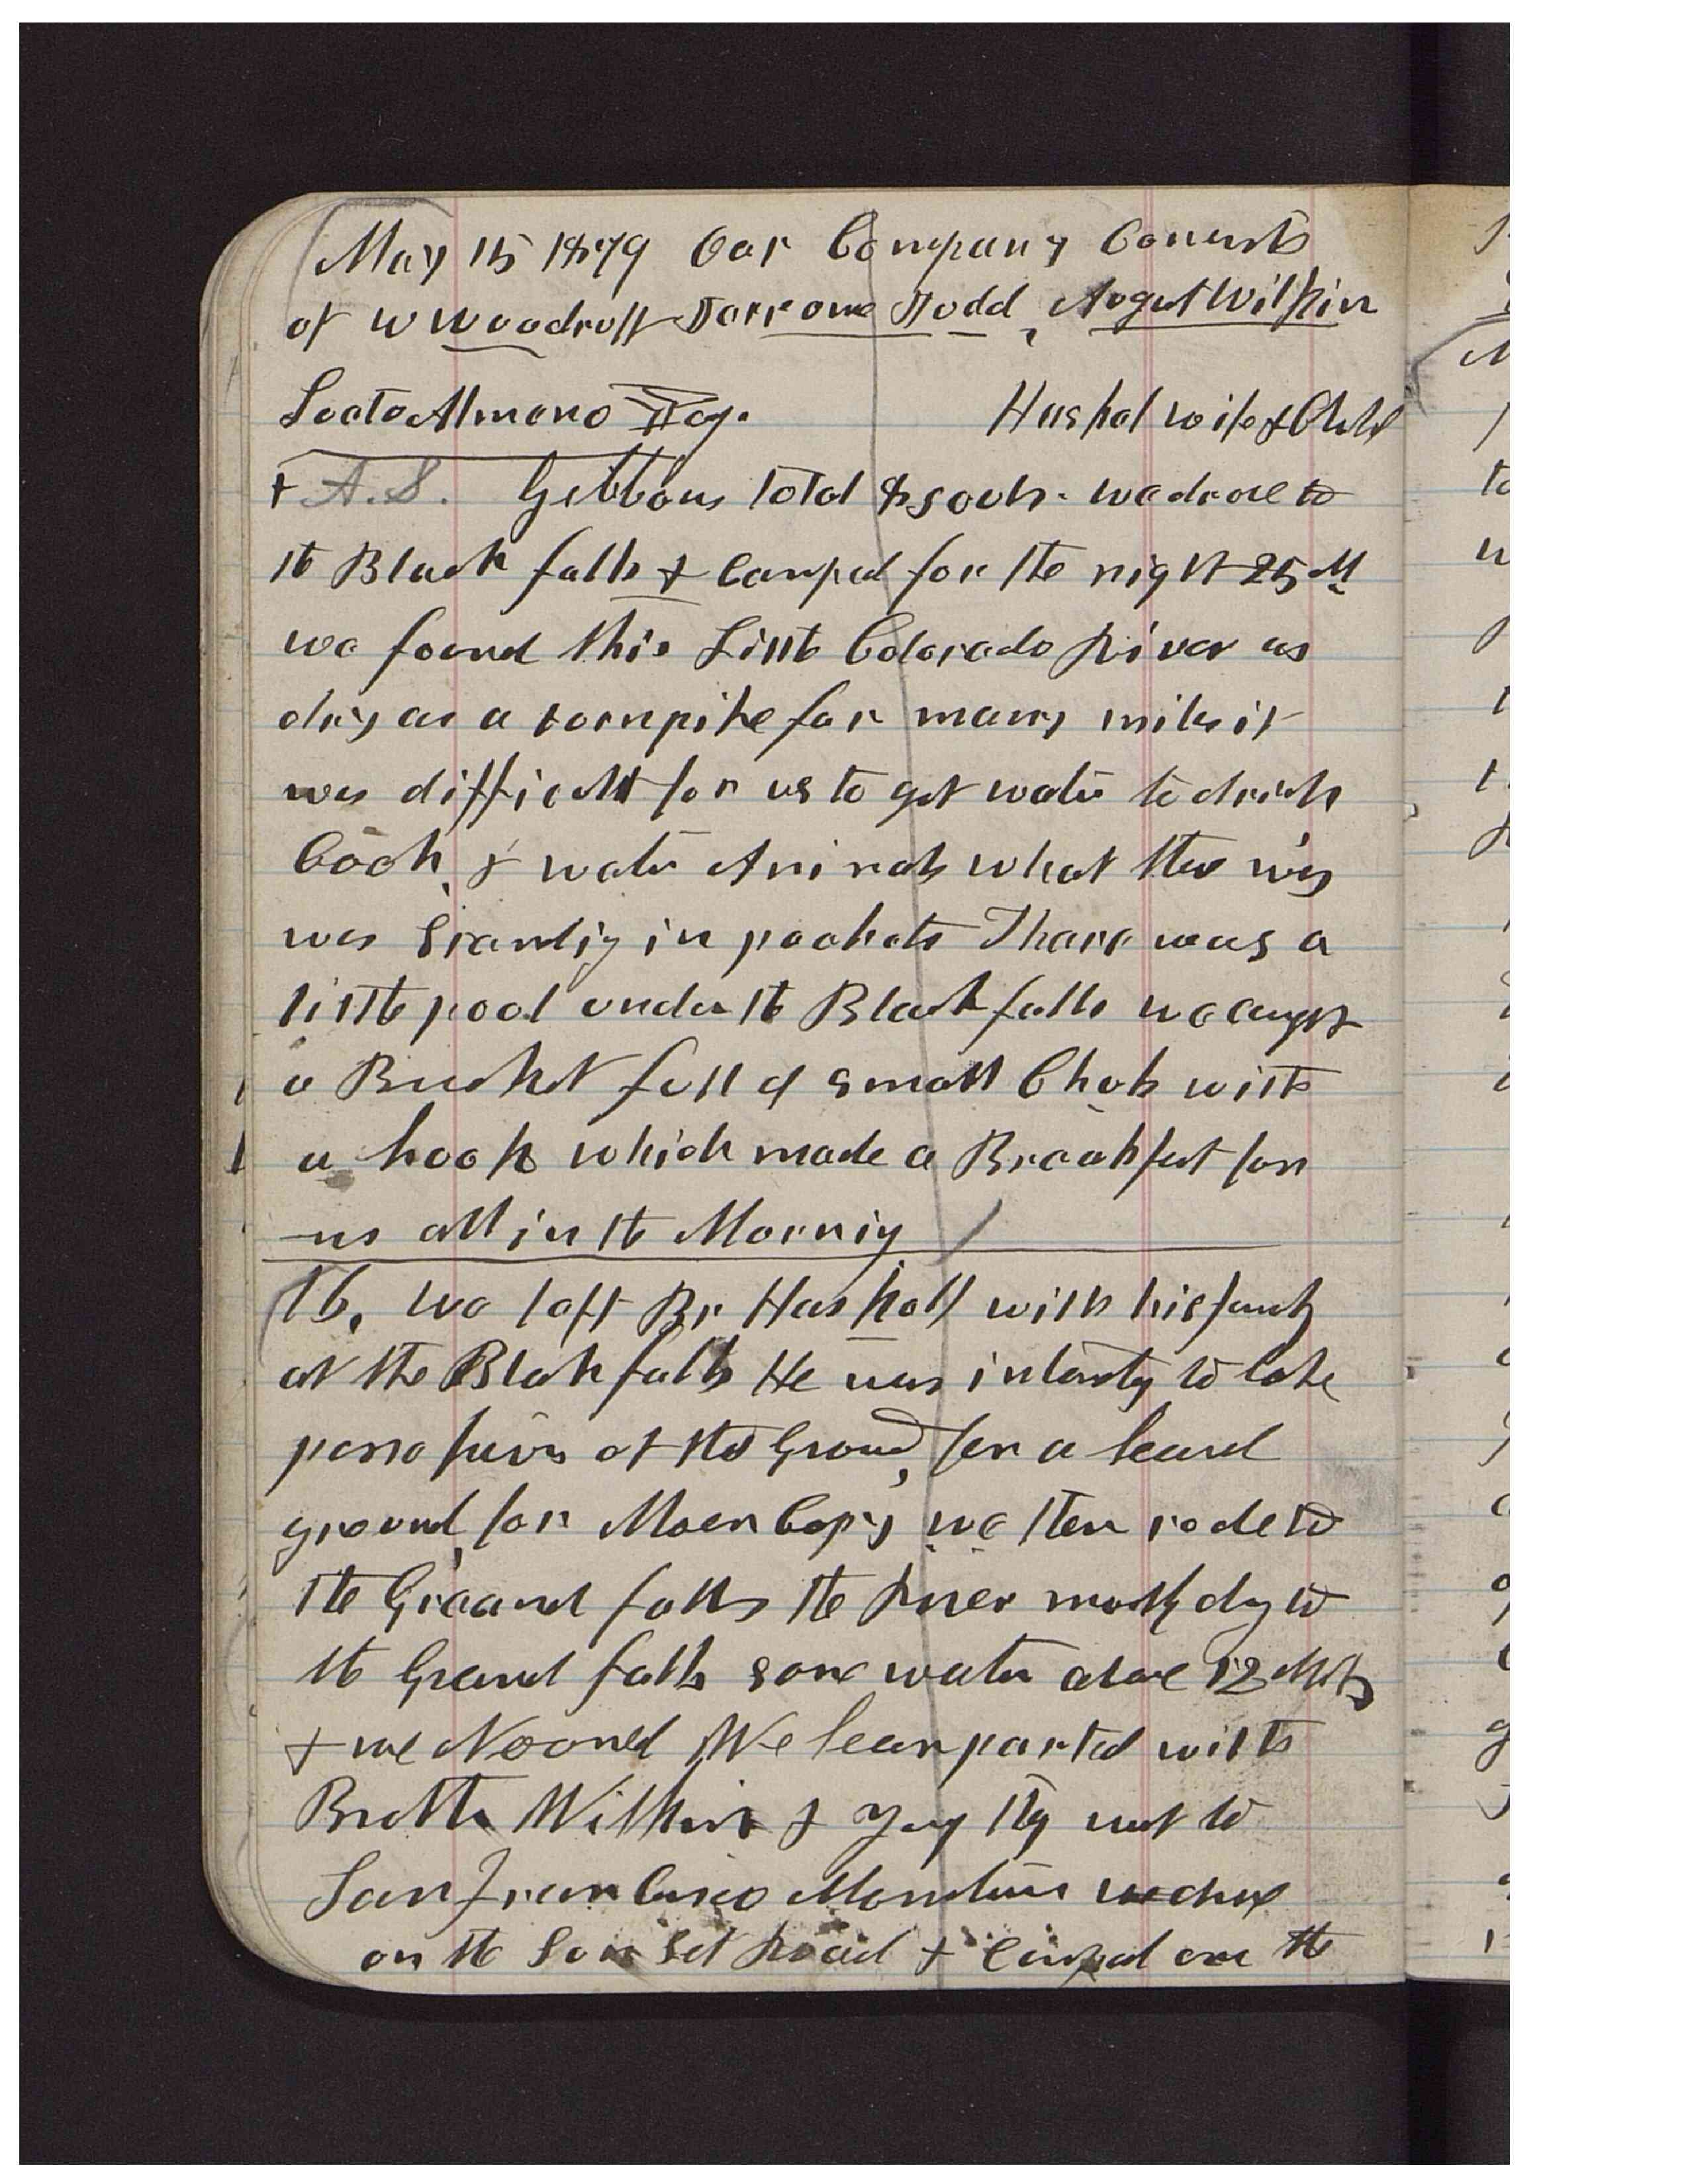 May 15 1879 Our Company Consists
of W Woodruff Lorrome Judd, August Wilkin
Lecto Almeno Hoy. Haskel wife & Child
+ A. S. Gibbons total 8 souls. we drove to
the Black falls & camped for the night 25 M
we found this Little Colorado River as
dry as a turnpike for many miles it
was difficult for us to get water to drink
Cook, & water Animals what ther was
was standig in pockets Thare was a
little pool under the Black falls we caught
a Bucket full of small Chubs with
a hook which made a Breakfast for
us all in the Mornig
16, we left Br Haskell with his family
at the Black falls He was intendig to take
possession of the Ground, for a herd
ground for Moen Copy we then rode to
the Graand falls the River mostly dry to
the Grand falls some water above 12 Mils
& we Nooned We hear parted with
Brother Wilkin & they went to
San Francisco Mountain we drove
on the Sun Set Road & camped on the